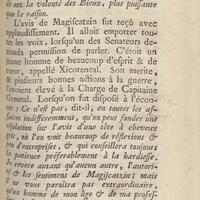 ils ont la volonté des Dieux, plus puissante
que la raison.
L'avis de Magiscatzin fut reçû avec
applaudissement. Il alloit emporter toutes
les voix, lorsqu'un des Senateurs de-
manda permission de parler. C'étoit un
jeune homme de beaucoup d'esprit & de
cœur, appellé Xicotencal. Son merite,
& plusieurs bonnes actions à la guerre,
l'avoient élevé à la Charge de Capitaine
General. Lorsqu'on fut disposé à l'écou-
ter: Ce n'est pas, dit-il, en toutes les af-
faires indifferemment, qu'on peut fonder une
résolution sur l'avis d'une tête à cheveux
gris, où l'on voit beaucoup de réflexions &
peu d'entreprises, & qui conseillera toujours
la patience préferablement à la hardiesse.
Je revere autant qu'aucun autre, l'autori-
té & les sentimens de Magiscatzin; mais
ne vous paroîtra pas extraordinaire,
qu'un homme de mon âge & de ma profes-